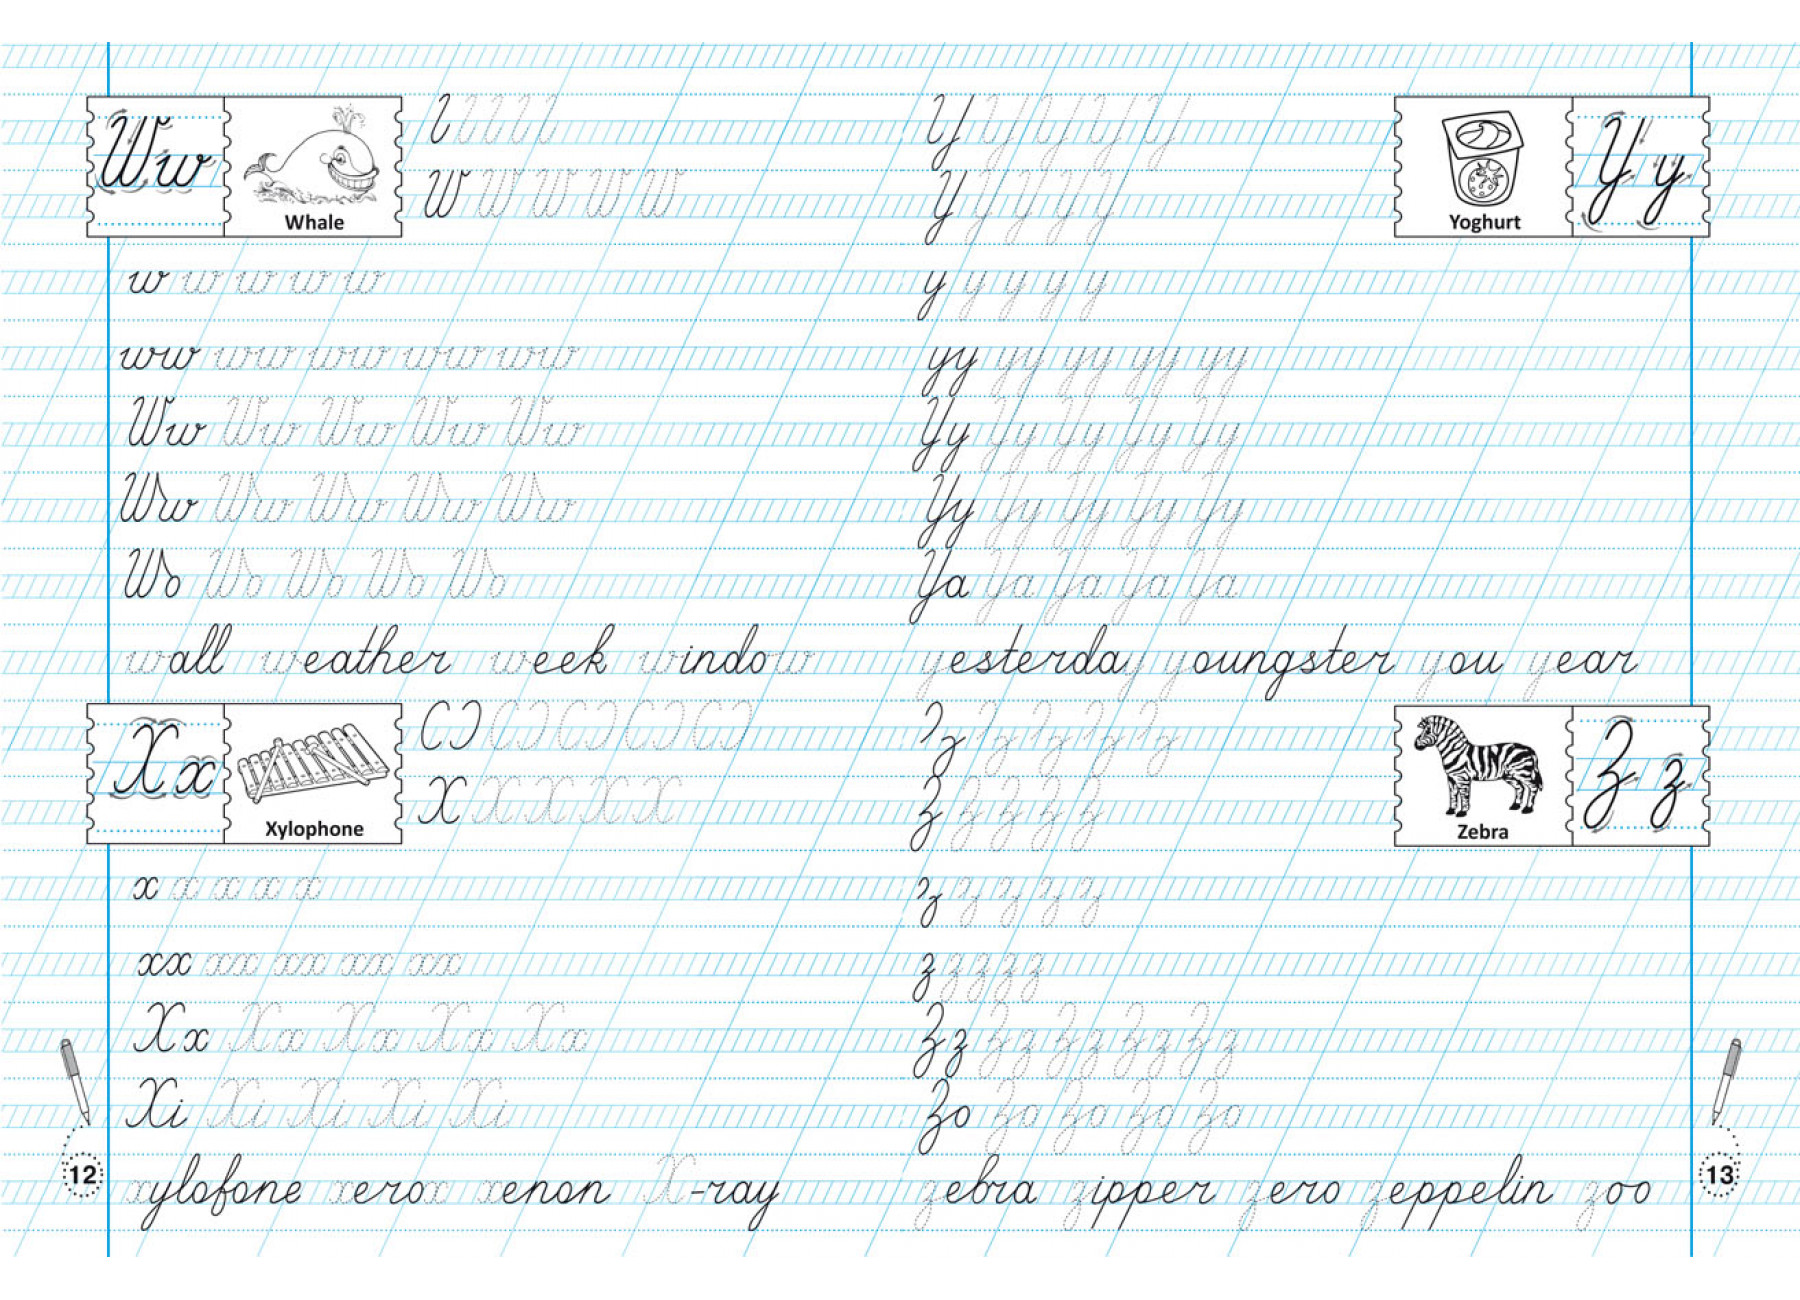 Ww
Whale
l l l l l
W W W W W
w w w w w
ww ww ww ww ww
Ww Ww Ww Ww Ww
Ww Ww Ww Ww Ww
Wo Wo Wo Wo Wo
wall weather week window
Xx
Xylophone
X X X X X
x x x x x
xx xx xx xx xx
Xx Xx Xx Xx Xx
Xi Xi Xi Xi Xi
xylofone xerox xenon X-ray
12
Y Y Y Y Y
Y Y Y Y Y
Yoghurt
Yy
y y y y y
yy yy yy yy yy
Yy Yy Yy Yy Yy
Yy Yy Yy Yy Yy
Ya Ya Ya Ya Ya
yesterday youngster you year
Z Z Z Z Z
Zebra
Zz
z z z z z
z z z z z
Zz Zz Zz Zz Zz
Zo Zo Zo Zo Zo
zebra zipper zero zeppelin zoo
13